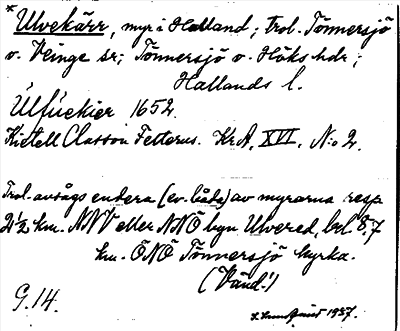 *Ulvekärr, myr i Halland; trol. Tönnersjö
v. Veinge sn; Tönnersjö o. Höks hdr;
Hallands l.
Ulfuekier 1652.
Kietell Classon Felterus. KrA, XVI, N:o 2.
Trol. avsågs endera (ev. båda) av myrarna resp
2 1/2 km. NNV eller NNÖ byn Ulvered, bel. 8,7
km. ÖNÖ Tönnersjö kyrka.
(Vänd!)
G.14.
1937.